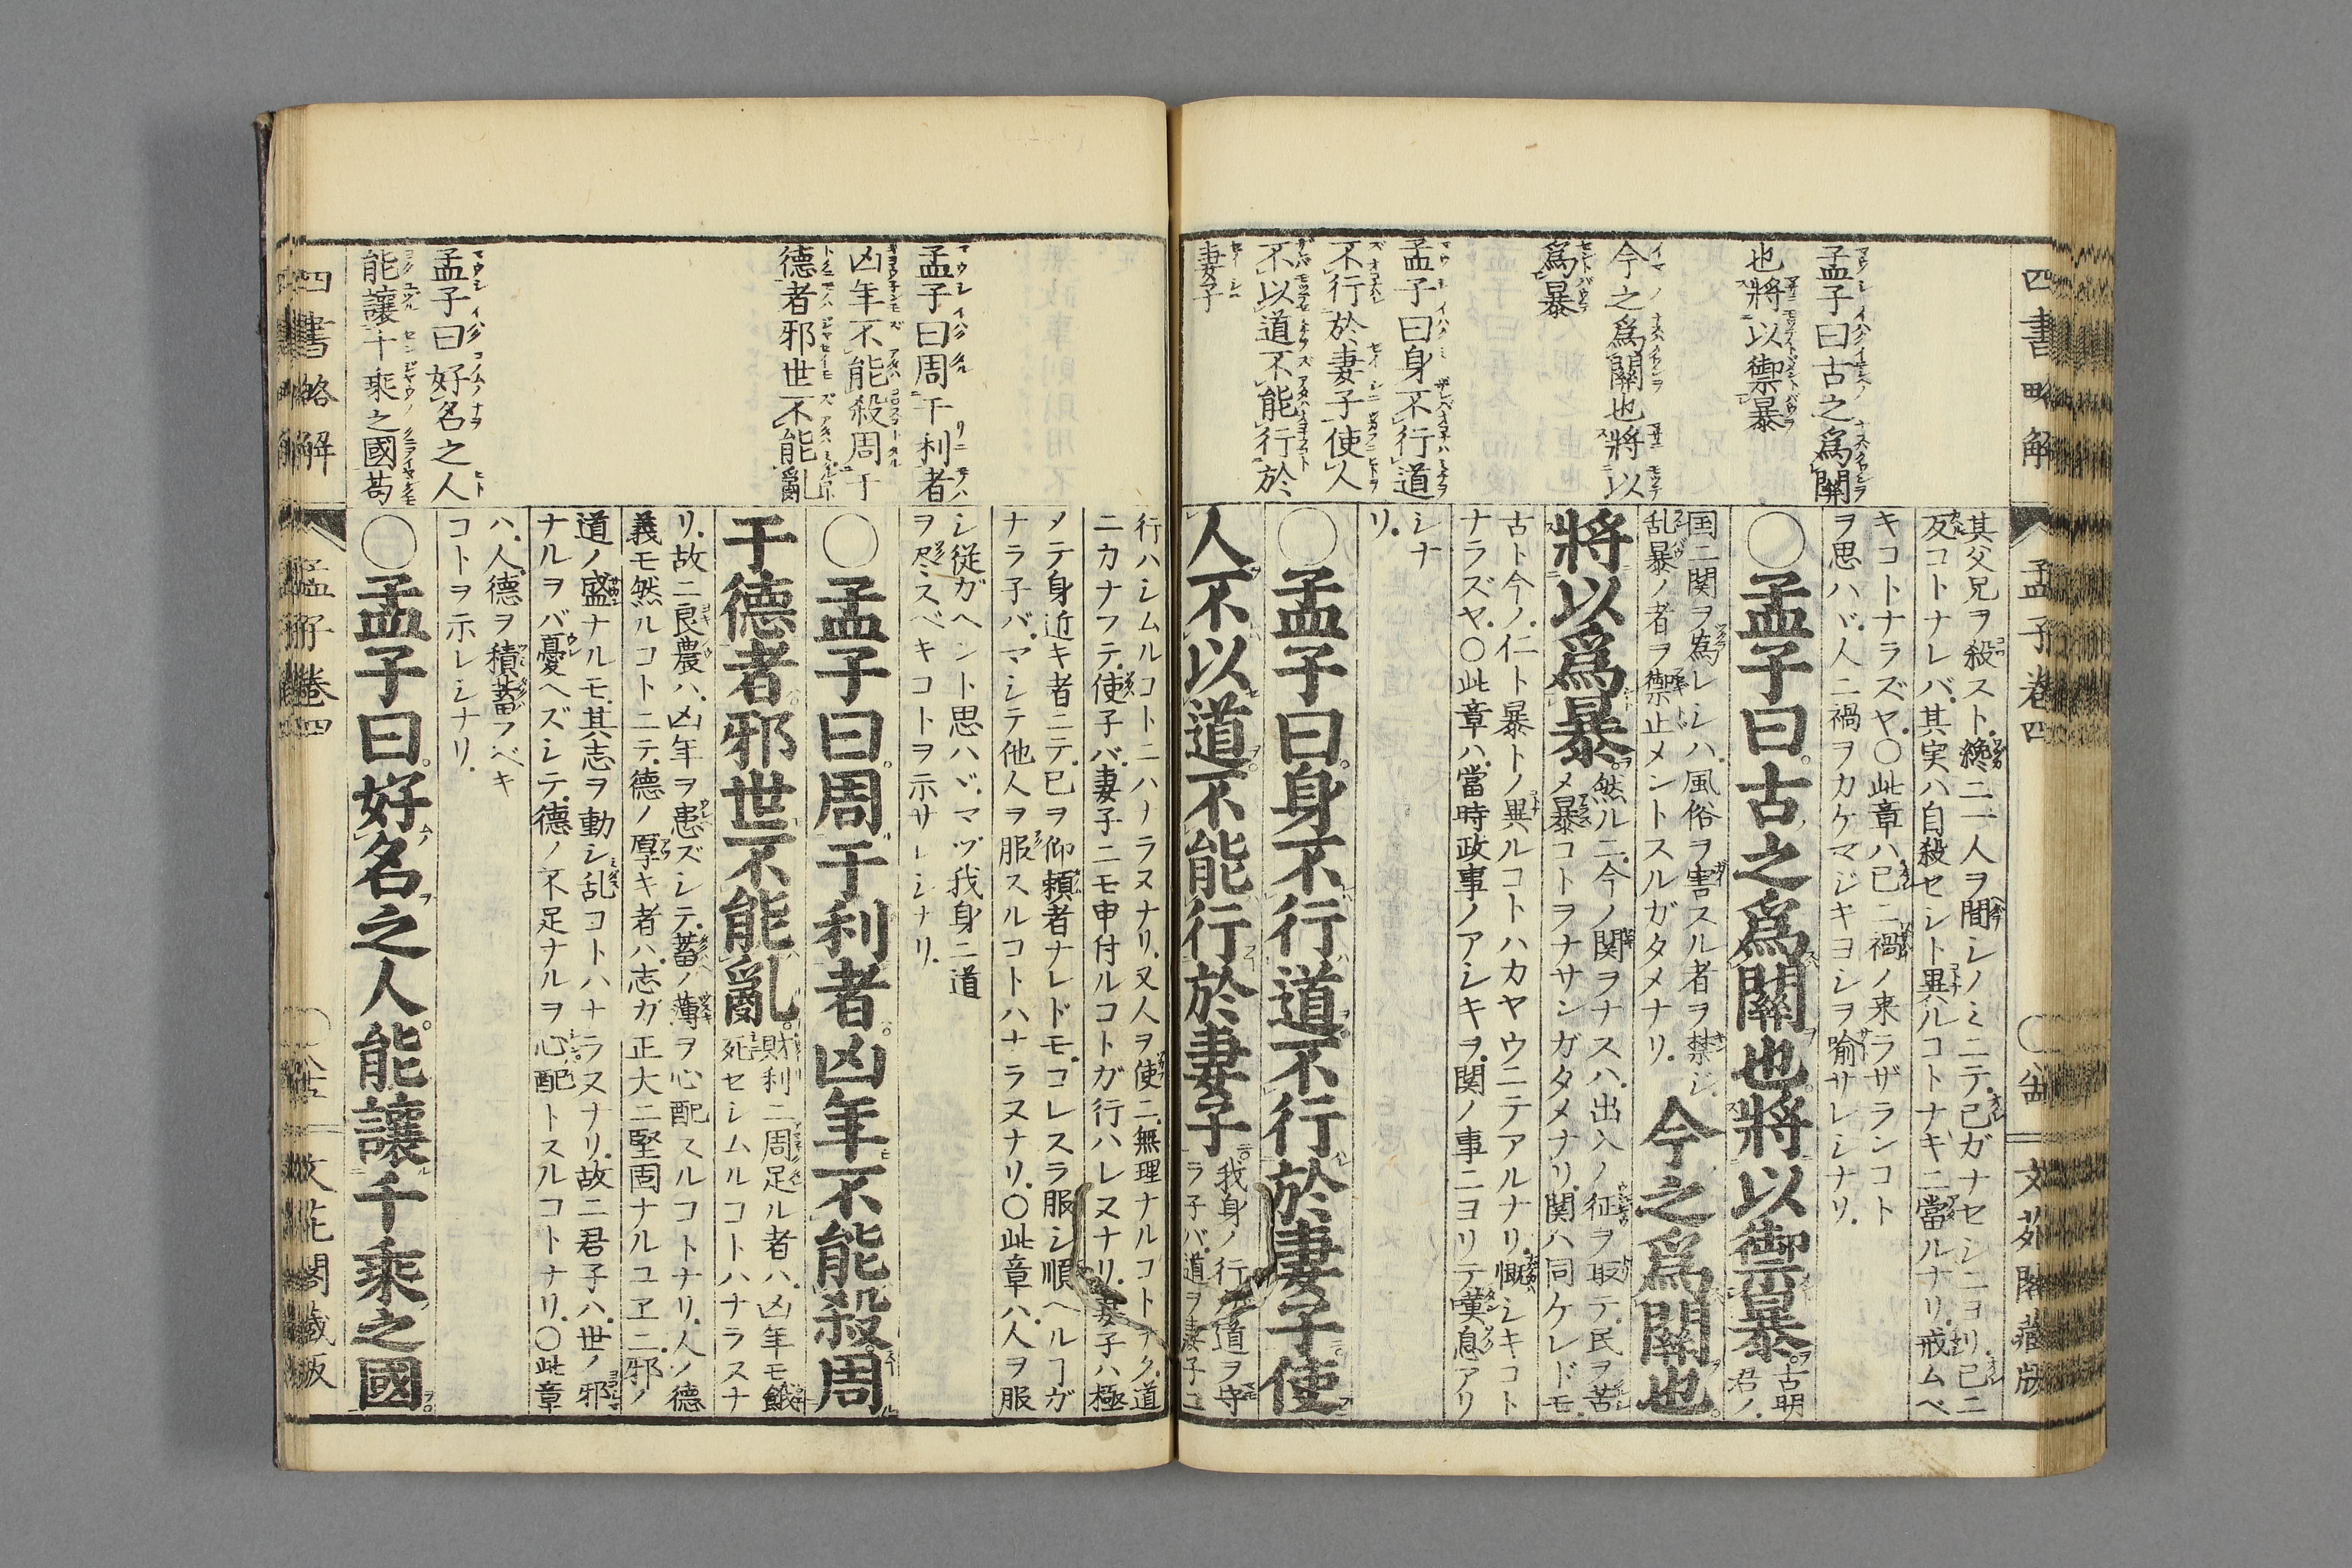 四書略解
孟子卷四
文苑閣藏版
孟子曰古之爲關
也將以禦暴
今之爲關也將以
爲暴
孟子曰身不行道
不行於妻子使人
不以道不能行於
妻子
其父兄ヲ殺スト.纔ニ一人ヲ間シノミニテ.己ガナセシニヨリ.己ニ
反コトナレバ.其実ハ自殺セシト異ルコトナキニ當ルナリ.戒ムベ
キコトナラズヤ.○此章ハ.己ニ禍ノ来ラザランコト
ヲ思ハヾ.人ニ禍ヲカケマジキヨシヲ喻サレシナリ.
○孟子曰古之爲關也將以禦暴
古明
君ノ.
国ニ関ヲ爲レシハ.風俗ヲ害スル者ヲ禁ジ.
乱暴ノ者ヲ禦止メントスルガタメナリ.
今之爲關也
將以爲暴
然ルニ.今ノ関ヲナスハ.出入ノ征ヲ取テ.民ヲ苦
メ暴コトヲナサンガタメナリ.関ハ同ケレドモ.
古ト今ノ.仁ト暴トノ異ルコトハカヤウニテアルナリ.慨シキコト
ナラズヤ.○此章ハ.當時政事ノアシキヲ.関ノ事ニヨリテ嘆息アリ
シナ
リ.
○孟子曰身不行道不行於妻子使
人不以道不能行於妻子
我身ノ行道ヲ守
ラ子バ.道ヲ妻子ニ
孟子曰周于利者
凶年不能殺周于
德者邪世不能亂
孟子曰好名之人
能讓千乘之國苟
行ハシムルコトニハナラヌナリ.又人ヲ使ニ.無理ナルコトナク.道
ニカナフテ.使子バ.妻子ニモ申付ルコトガ行ハレヌナリ.妻子ハ極
メテ身近キ者ニテ.己ヲ仰頼者ナレドモ.コレスラ服シ順ヘルヿガ
ナラ子バ.マシテ他人ヲ服スルコトハナラヌナリ.○此章ハ.人ヲ服
シ従ガヘント思ハヾ.マヅ我身ニ道
ヲ尽スベキコトヲ示サレシナリ.
○孟子曰周于利者凶年不能殺周
于德者邪世不能亂
財利ニ周足ル者ハ.凶年モ餓
死セシムルコトハナラスナ
リ.故ニ良農ハ.凶年ヲ患ズシテ.蓄ノ薄ヲ心配スルコトナリ.人ノ德
義モ然ルコトニテ.德ノ厚キ者ハ.志ガ正大ニ堅固ナルユヱニ.邪ノ
道ノ盛ナルモ.其志ヲ動シ乱コトハナラヌナリ.故ニ君子ハ.世ノ邪
ナルヲバ憂ヘズシテ.德ノ不足ナルヲ心配トスルコトナリ.○此章
ハ.人.德ヲ積蓄フベキ
コトヲ示レシナリ.
○孟子曰好名之人能讓千乘之國
四書略解
孟子卷四
藏版